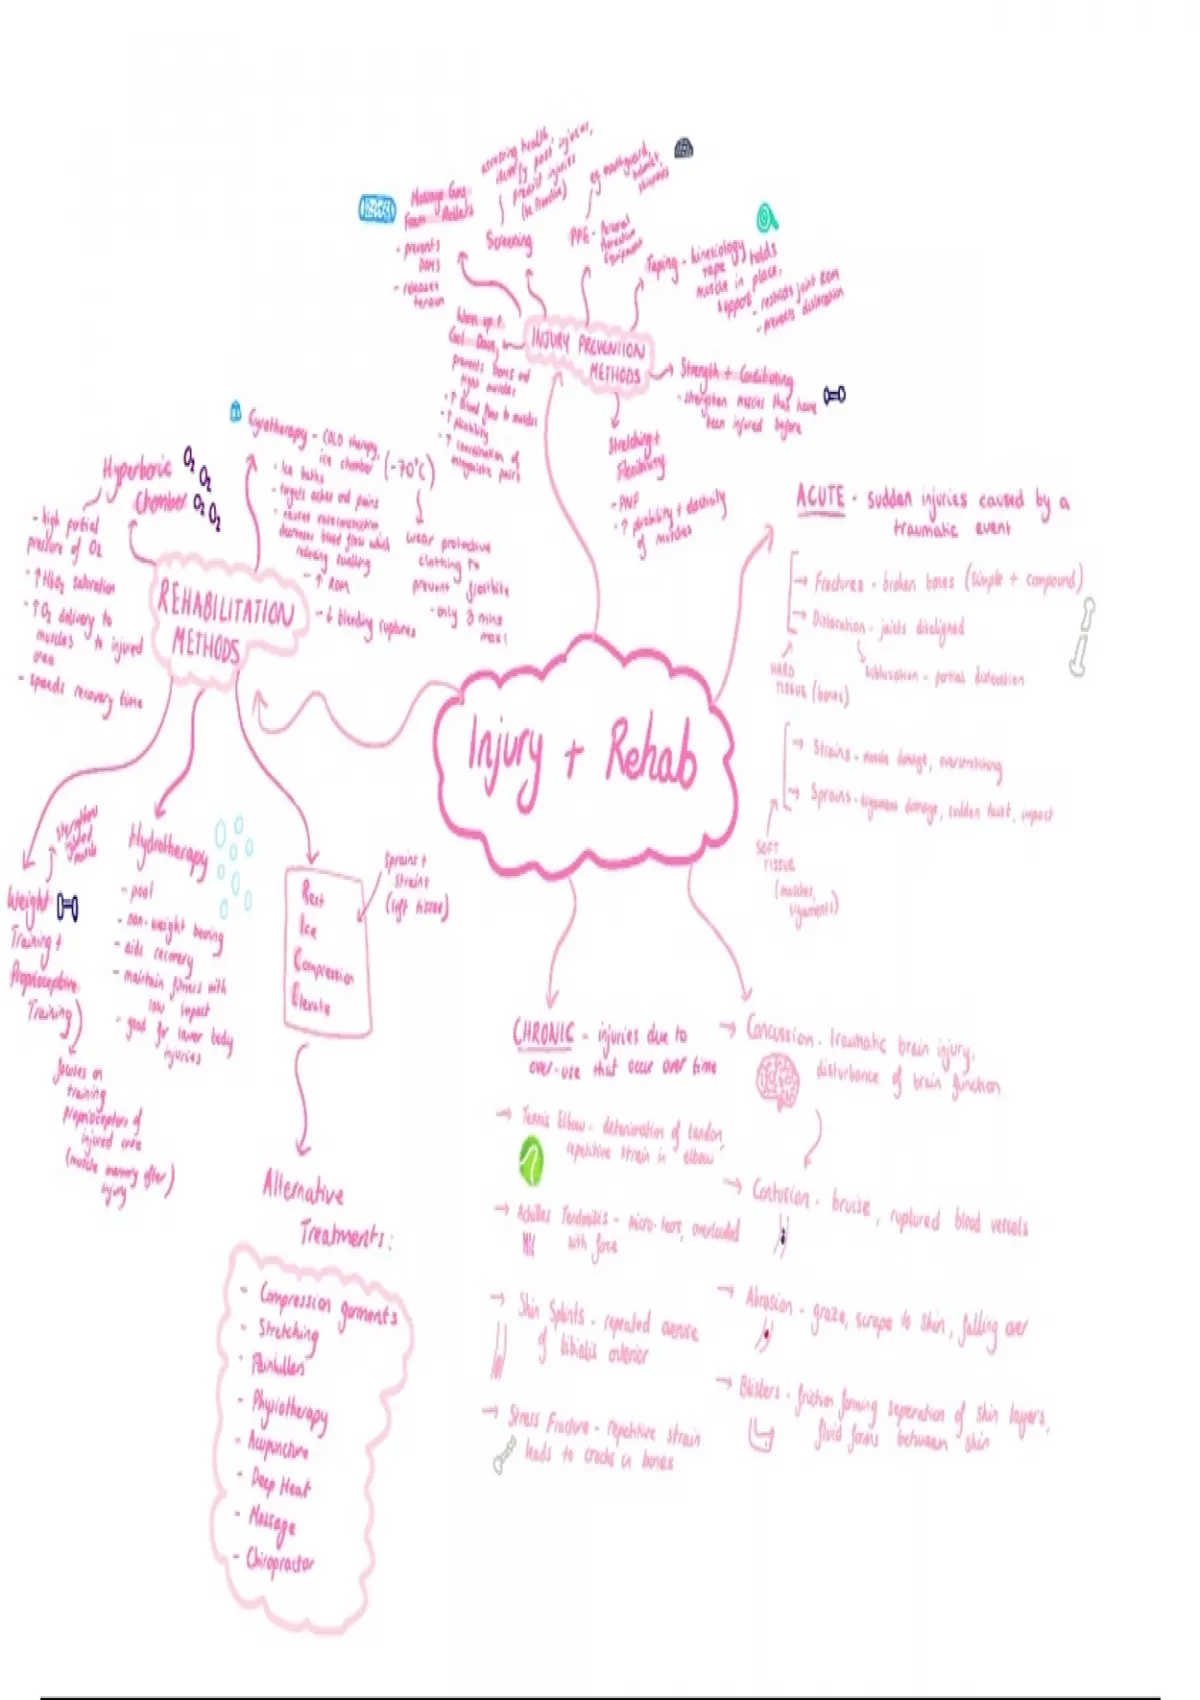 Injury + Rehab
INJURY PREVENTION
METHODS
Massage Guns
Foam Rollers
- prevents
DOMS
- releases
tension
Screening
assessing health,
identify past injuries,
predict injuries
PPE - Personal
Protective
Equipment
eg mouthguard,
helmet,
Taping - kinesiology
tape holds
muscle in place,
support
- restricts joint ROM
- prevents dislocation
Strength + Conditioning
- strengthen muscles that have
been injured before
Stretching +
Flexibility
- PNF
- ↑ pliability + elasticity
of muscles
Warm up +
Cool Down
prevents DOMS and
tight muscles
- ↑ blood flow to muscles
- ↑ pliability
- ↑ coordination of
antagonistic pairs
REHABILITATION
METHODS
Hyperboric
Chamber
O2
O2
O2 O2
- high partial
pressure of O2
- ↑ HbO2 saturation
- ↑ O2 delivery to
muscles to injured
area
- speeds recovery time
Cyrotherapy - COLD therapy,
ice chamber
(-70°C)
- Ice baths
- targets aches and pains
- causes vasoconstriction
decreases blood flow which
reducing swelling
- ↑ ROM
- ↓ bleeding ruptures
wear protective
clothing to
prevent frostbite
- only 3 mins
max!
Weight
Training +
Proprioceptive
Training
strengthen
injured
muscle
focuses on
training
proprioceptors of
injured area
(muscle memory after
injury)
Hydrotherapy
- pool
- non-weight bearing
- aids recovery
- maintain fitness with
low impact
- good for lower body
injuries
Rest
Ice
Compression
Elevate
Sprains +
Strains
(soft tissue)
Alternative
Treatments:
- Compression garments
- Stretching
- Painkillers
- Physiotherapy
- Acupuncture
- Deep Heat
- Massage
- Chiropractor
ACUTE - sudden injuries caused by a
traumatic event
→ Fractures - broken bones (simple + compound)
→ Dislocation - joints disaligned
Subluxation - partial dislocation
HARD
TISSUE (bones)
→ Strains - muscle damage, overstretching
→ Sprains - ligament damage, sudden twist, impact
SOFT
TISSUE
(muscles,
ligaments)
CHRONIC - injuries due to
over-use that occur over time
→ Tennis Elbow - deterioration of tendon,
repetitive strain in elbow
→ Achilles Tendonitis - micro-tears, overloaded
with force
→ Shin Splints - repeated overuse
of tibialis anterior
→ Stress Fracture - repetitive strain
leads to cracks in bones
→ Concussion - traumatic brain injury,
disturbance of brain function
→ Contusion - bruise, ruptured blood vessels
→ Abrasion - graze, scrape to skin, falling over
→ Blisters - friction forming seperation of skin layers,
fluid forms between skin